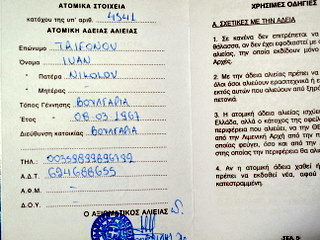 ΑΤΟΜΙΚΑ ΣΤΟΙΧΕΙΑ
κατόχου της υπ' αριθ. 4541
ΑΤΟΜΙΚΗΣ ΑΔΕΙΑΣ ΑΛΙΕΙΑΣ
Επώνυμο
Όνομα IVAN
» Πατέρα NIKOLOV
» Μητέρας -
Τόπος Γέννησης ΒΟΥΛΓΑΡΙΑ
Έτος » 08-03-1967
Διεύθυνση κατοικίας ΒΟΥΛΓΑΡΙΑ
ΤΗΛ.:
Α.Δ.Τ. 624688655
Α.Φ.Μ. -
Δ.Ο.Υ. -
Ο ΑΞΙΩΜΑΤΙΚΟΣ ΑΛΙΕΙΑΣ
ΧΡΗΣΙΜΕΣ ΟΔΗΓΙΕΣ
Α. ΣΧΕΤΙΚΕΣ ΜΕ ΤΗΝ ΑΔΕΙΑ
1. Σε κανένα δεν επιτρέπεται να
θάλασσα, αν δεν έχει εφοδιαστεί με
αλιείας, την οποία εκδίδουν μόνο
Αρχές.
2. Με την άδεια αλιείας πρέπει να
όλοι όσοι αλιεύουν ερασιτεχνικά ή ε
εκτός αυτών που αλιεύουν από ξηρά
δημοτικού.
3. Η ατομική άδεια αλιείας ισχύει
Ελλάδα, αλλά ο κάτοχος της οφείλει
περιφέρεια που αλιεύει, να την
από την Λιμενική Αρχή από την π
οποία φεύγει, όσο και από
στης οποίας την περιφέρεια
4. Αν η ατομική άδεια χαθεί ή
πρέπει να εκδοθεί νέα, αφού
κατεστραμμένη.